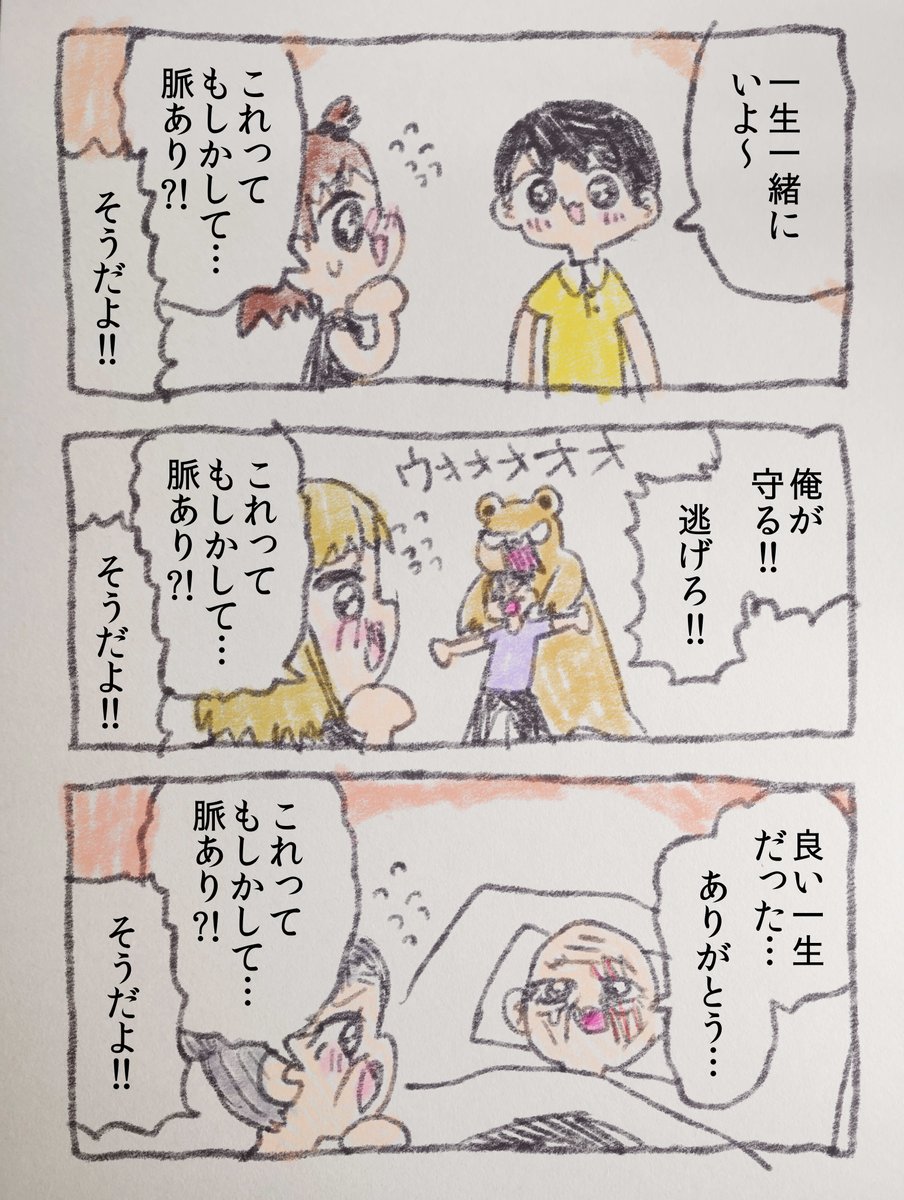 一生一緒に
いよ〜
これって
もしかして…
脈あり?!
そうだよ!!
俺が
守る!!
逃げろ!!
ウオオオオオオ
これって
もしかして…
脈あり?!
そうだよ!!
良い一生
だった…
ありがとう…
これって
もしかして…
脈あり?!
そうだよ!!